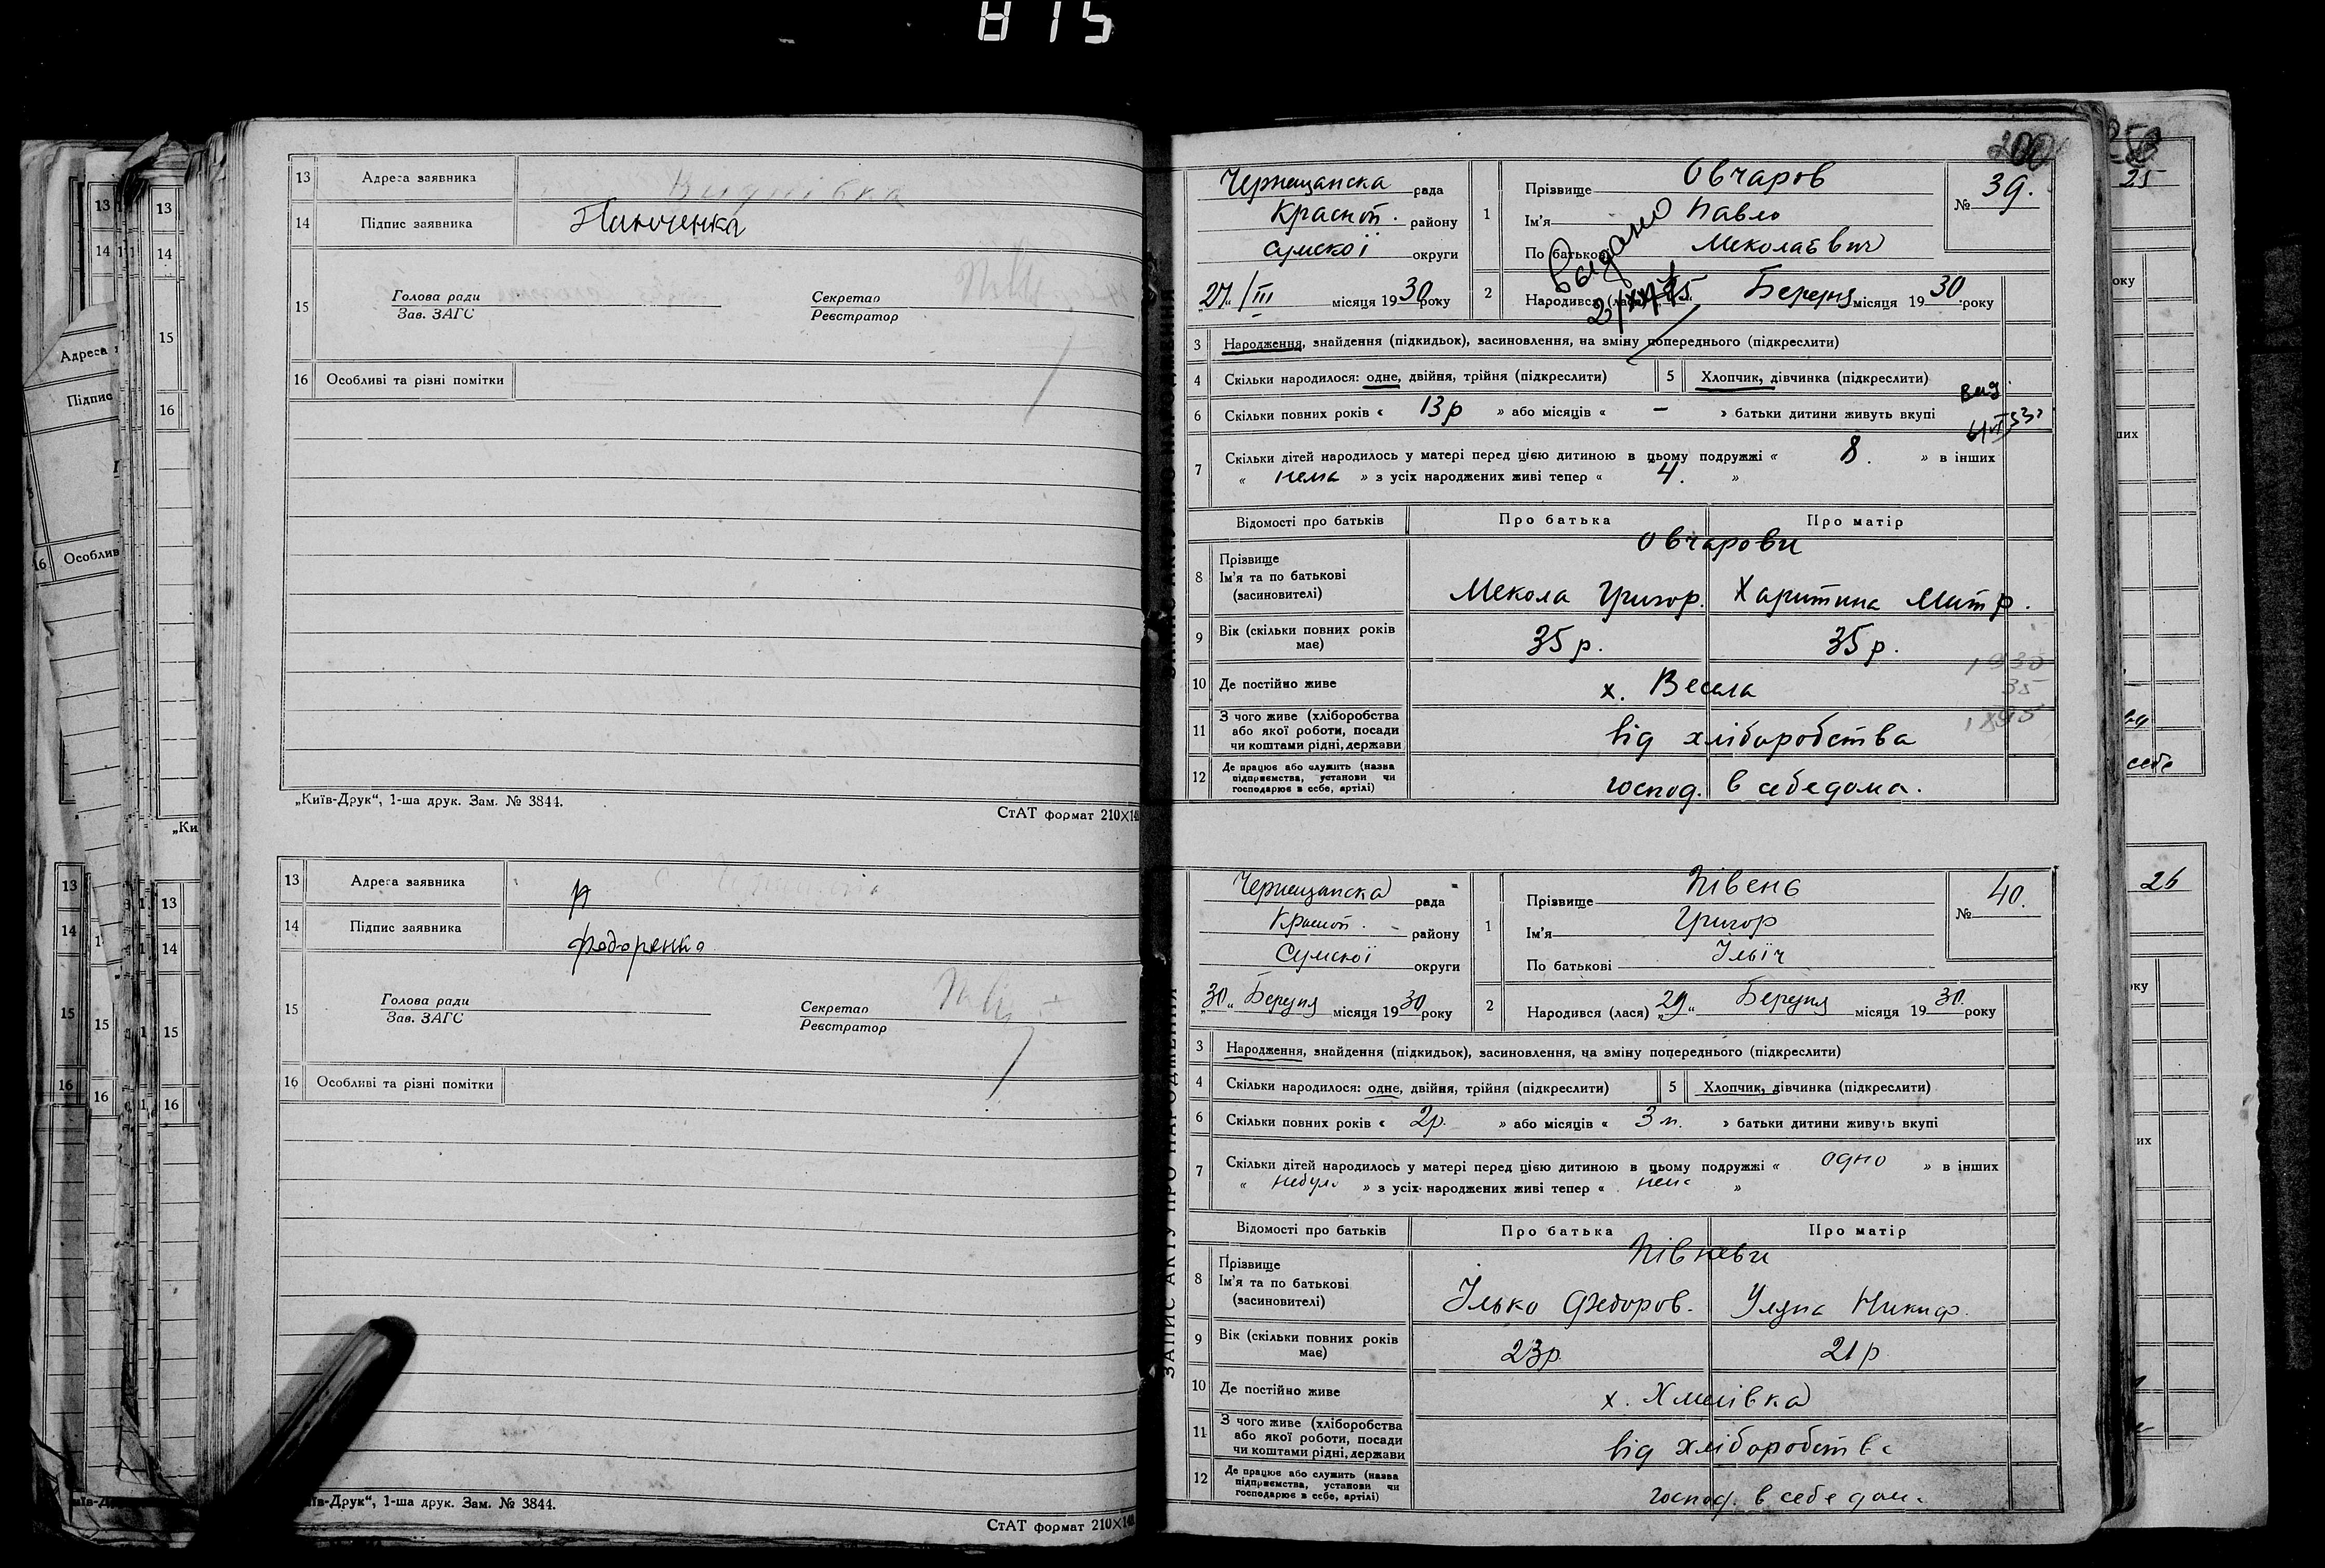 815
13 Адреса заявника
14 Підпис заявника Панченка
15 Голова ради
Зав. ЗАГС
Секретар
Реєстратор
16 Особливі та різні помітки
„Київ-Друк“, 1-ша друк. Зам. № 3844.
СтАТ формат 210×14
13 Адреса заявника
14 Підпис заявника Федоренко
15 Голова ради
Зав. ЗАГС
Секретар
Реєстратор
16 Особливі та різні помітки
їв-Друк“, 1-ша друк. Зам. № 3844.
СтАТ формат 210×14
200
Чернещанска рада
Красноп. району
Сумскої округи
27 / III місяця 1930 року
1 Прізвище Овчаров
Ім'я Павло
По батькові Меколаєвич
№ 39.
Выдано
2 Народився (лася) 25 Березня місяця 1930 року
3 Народження, знайдення (підкидьок), засиновлення, на зміну попереднього (підкреслити)
4 Скільки народилося: одне, двійня, трійня (підкреслити) 5 Хлопчик, дівчинка (підкреслити)
6 Скільки повних років « 13 р » або місяців « – » батьки дитини живуть вкупі
7 Скільки дітей народилось у матері перед цією дитиною в цьому подружжі « 8. » в інших
« нема » з усіх народжених живі тепер « 4. »
Відомості про батьків Про батька Про матір
8 Прізвище Овчарови
Ім'я та по батькові
(засиновителі) Мекола Григор. Харитина Митр.
9 Вік (скільки повних років має) 35 р. 35 р.
1930
35
1895
10 Де постійно живе х. Весела
11 З чого живе (хліборобства
або якої роботи, посади
чи коштами рідні, держави від хліборобства
12 Де працює або служить (назва
підприємства, установи чи
господарює в себе, артілі) господ. в себе дома.
ЗАПИС АКТУ ПРО НАРОДЖЕННЯ
Чернещанска рада
Красноп. району
Сумскої округи
30 Березня місяця 1930 року
1 Прізвище Півень
Ім'я Григор
По батькові Ільїч
№ 40.
2 Народився (лася) „29“ Березня місяця 1930. року
3 Народження, знайдення (підкидьок), засиновлення, на зміну попереднього (підкреслити)
4 Скільки народилося: одне, двійня, трійня (підкреслити) 5 Хлопчик, дівчинка (підкреслити)
6 Скільки повних років « 2 р. » або місяців « 3 м. » батьки дитини живуть вкупі
7 Скільки дітей народилось у матері перед цією дитиною в цьому подружжі « одно » в інших
« небуло » з усіх народжених живі тепер « нема »
Відомості про батьків Про батька Про матір
8 Прізвище Півневи
Ім'я та по батькові
(засиновителі) Ілько Федоров. Уляна Никиф.
9 Вік (скільки повних років має) 23 р. 21 р
10 Де постійно живе х. Хмелівка
11 З чого живе (хліборобства
або якої роботи, посади
чи коштами рідні, держави від хліборобства
12 Де працює або служить (назва
підприємства, установи чи
господарює в себе, артілі) господ. в себе дома